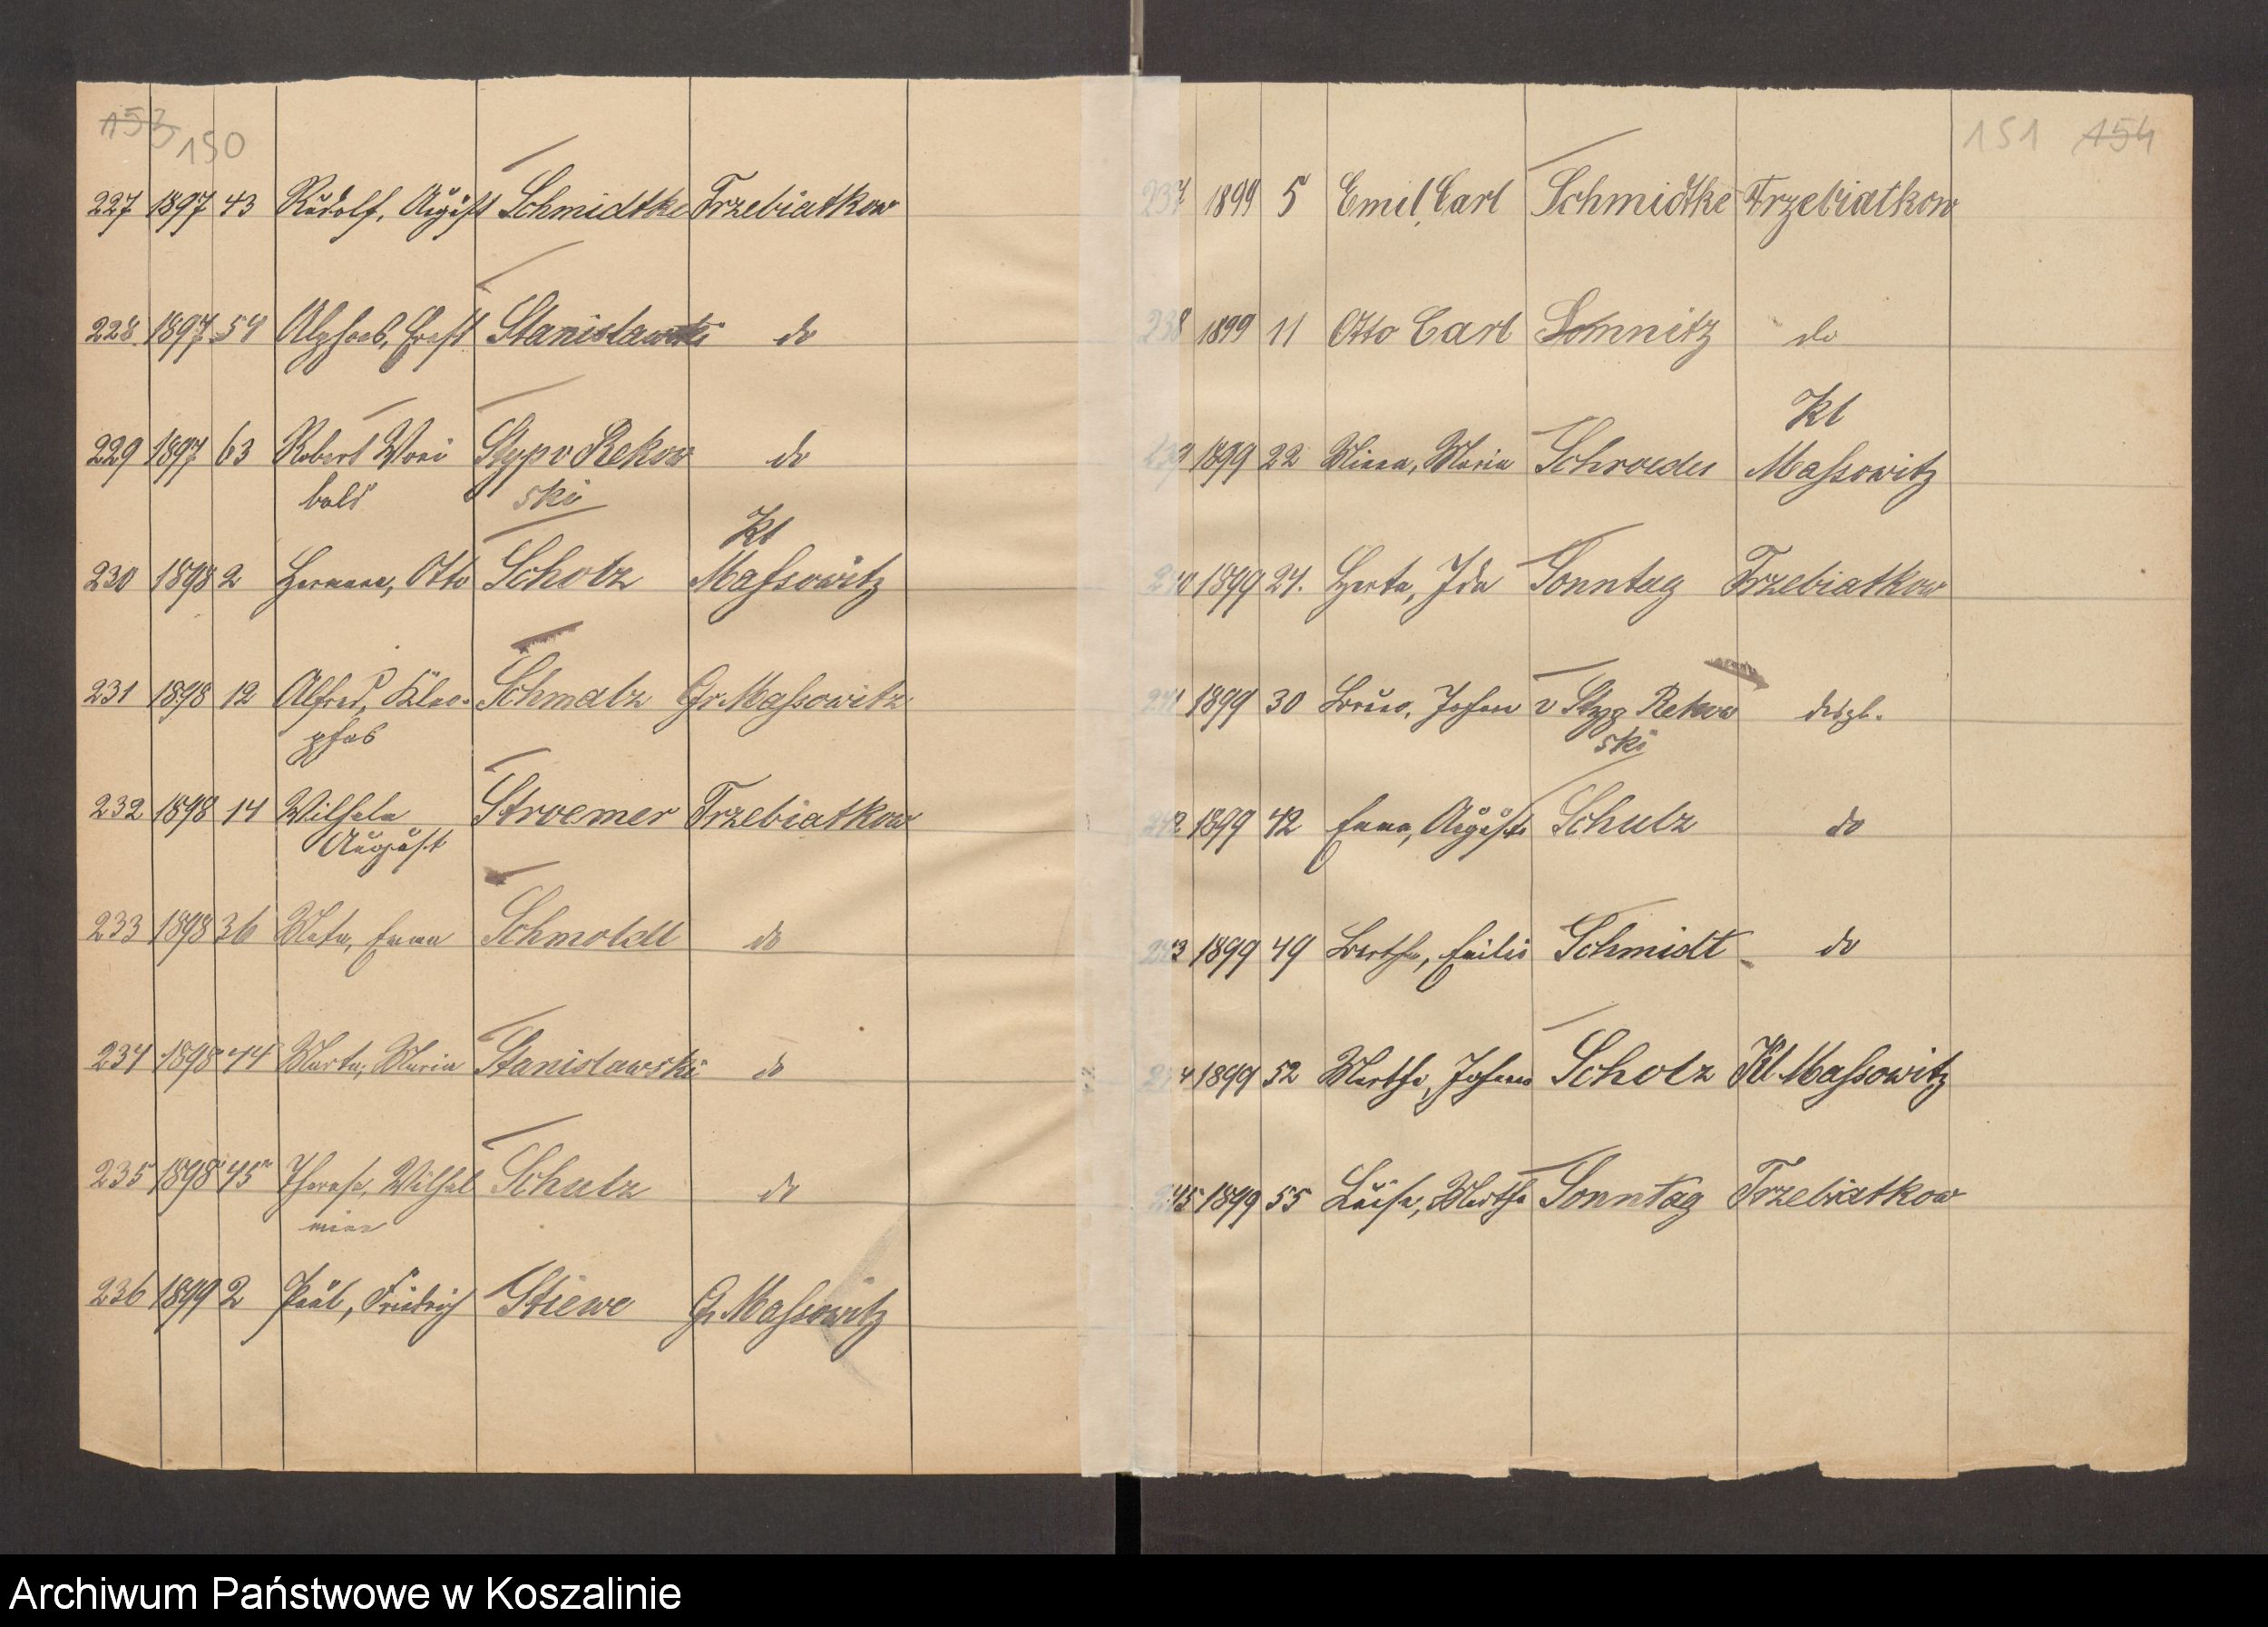 153 150
227 1897 43 Rudolf, August Schmidtke Trzebiatkow
228 1897 54 Alphons, Ernst Stanislawski do
229 1897 63 Robert Wori Styp v Rekow do
bald ski
Kl
230 1898 2 Hermann, Otto Scholz Massowitz
231 1898 12 Alfred, Kleo- Schmalz Gr. Massowitz
phas
232 1898 14 Wilhelm Stroemer Trzebiatkow
August
233 1898 36 Meta, Emma Schmoldt do
234 1898 44 Marta, Maria Stanislawski do
235 1898 45 Therese, Wilhel Schulz do
mine
236 1899 2 Paul, Friedrich Stiewe Gr Massowitz
151 154
237 1899 5 Emil, Carl Schmidtke Trzebiatkow
238 1899 11 Otto Carl Somnitz do
Kl
239 1899 22 Minna, Maria Schroeder Massowitz
240 1899 24. Herta, Ida Sonntag Trzebiatkow
241 1899 30 Bruno, Johann v Styp Rekow desgl.
ski
242 1899 42 Emma, Auguste Schulz do
243 1899 49 Bertha, Emilie Schmidt do
244 1899 52 Marthe, Johanna Scholz Kl Massowitz
245 1899 55 Luise, Martha Sonntag Trzebiatkow
Archiwum Państwowe w Koszalinie